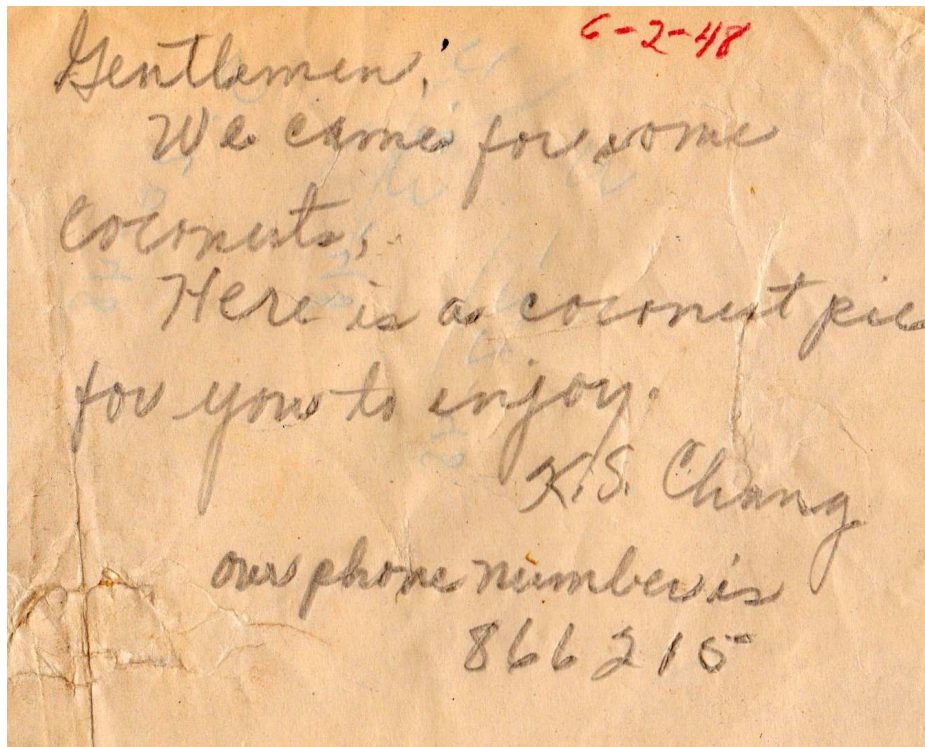 6-2-48
Gentlemen,
We came for some
coconuts,
Here is a coconut pie
for you to enjoy.
K.S. Chang
our phone number is
866215